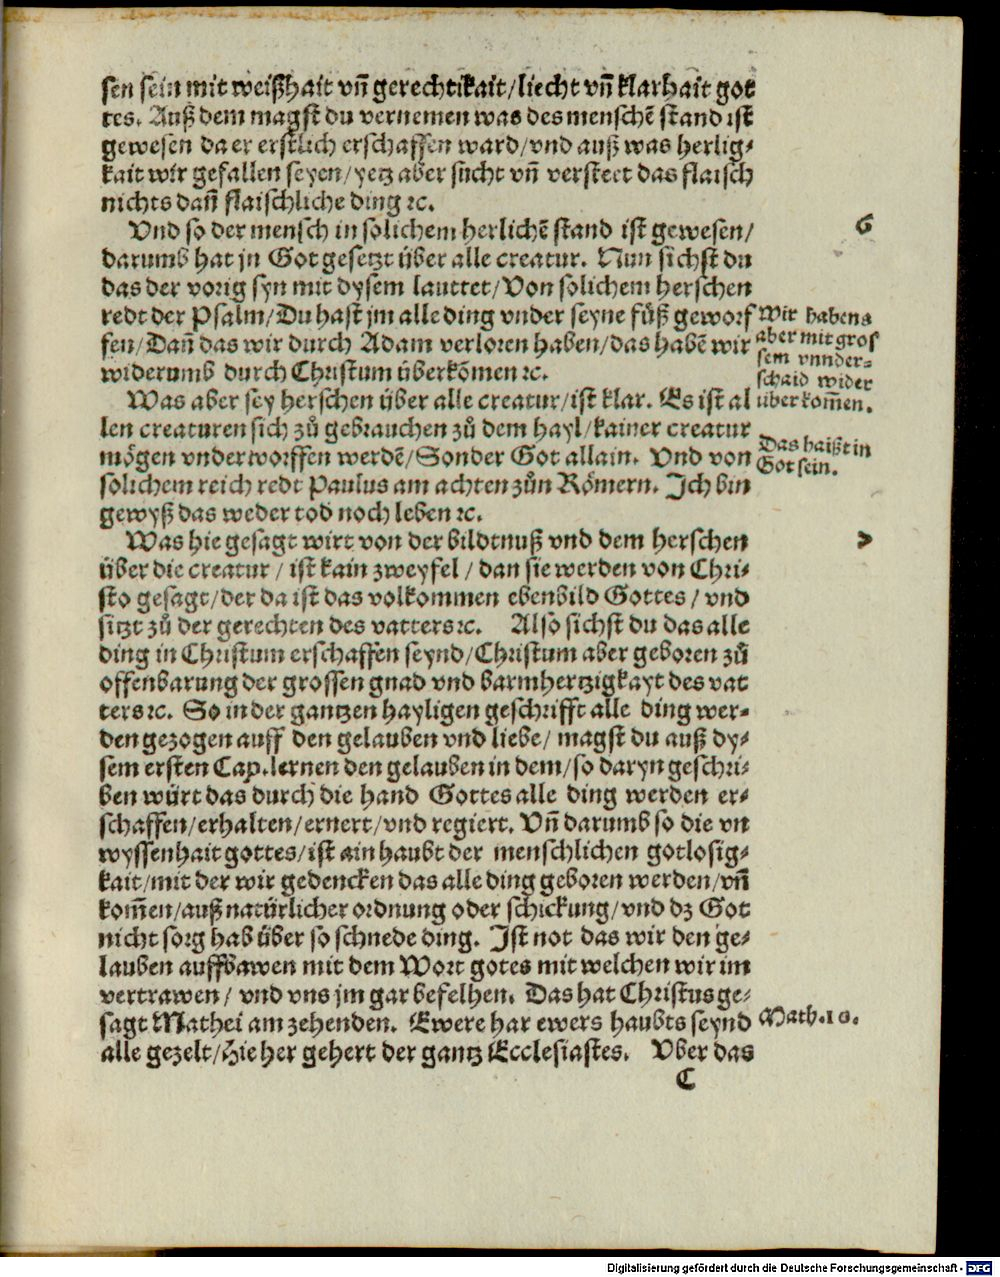 sen sein mit weißhait vñ gerechtikait/liecht vñ klarhait got
tes. Auß dem magst du vernemen was des menschẽ stand ist
gewesen da er erstlich erschaffen ward/vnd auß was herlig-
kait wir gefallen seyen/yetz aber sücht vñ versteet das flaisch
nichts dañ flaischliche ding ꝛc.
Vnd so der mensch in solichem herlichẽ stand ist gewesen/
6
darumb hat jn Got gesetzt über alle creatur. Nun sichst du
das der vorig syn mit dysem lauttet/Von solichem herschen
redt der Psalm/Du hast jm alle ding vnder seyne füß geworf
fen/Dañ das wir durch Adam verloren haben/das habẽ wir
widerumb durch Christum überkõmen ꝛc.
Wir habens
aber mit gros
sem vnnder-
schaid wider
überkom̃en.
Was aber sey herschen über alle creatur/ist klar. Es ist al
len creaturen sich zů gebrauchen zů dem hayl/kainer creatur
mögen vnderworffen werdẽ/Sonder Got allain. Vnd von
solichem reich redt Paulus am achten zůn Römern. Ich bin
gewyß das weder tod noch leben ꝛc.
Das haißt in
Got sein.
Was hie gesagt wirt von der bildtnuß vnd dem herschen
über die creatur / ist kain zweyfel / dan sie werden von Chri-
sto gesagt/der da ist das volkommen ebenbild Gottes / vnd
sitzt zů der gerechten des vatters ꝛc. Also sichst du das alle
ding in Christum erschaffen seynd/Christum aber geboren zů
offenbarung der grossen gnad vnd barmhertzigkayt des vat
ters ꝛc. So in der gantzen hayligen geschrifft alle ding wer-
den gezogen auff den gelauben vnd liebe/ magst du auß dy-
sem ersten Cap.lernen den gelauben in dem/so daryn geschri-
ben würt das durch die hand Gottes alle ding werden er-
schaffen/erhalten/ernert/vnd regiert. Vñ darumb so die vn
wyssenhait gottes/ist ain haubt der menschlichen gotlosig-
kait/mit der wir gedencken das alle ding geboren werden/vñ
kom̃en/auß natürlicher ordnung oder schickung/vnd dz Got
nicht sorg hab über so schnede ding. Ist not das wir den ge-
lauben auffbawen mit dem Wort gotes mit welchen wir im
vertrawen / vnd vns jm gar befelhen. Das hat Christus ge-
sagt Mathei am zehenden. Ewere har ewers haubts seynd
Math.10.
alle gezelt/Hie her gehert der gantz Ecclesiastes. Vber das
C
Digitalisierung gefördert durch die Deutsche Forschungsgemeinschaft - DFG